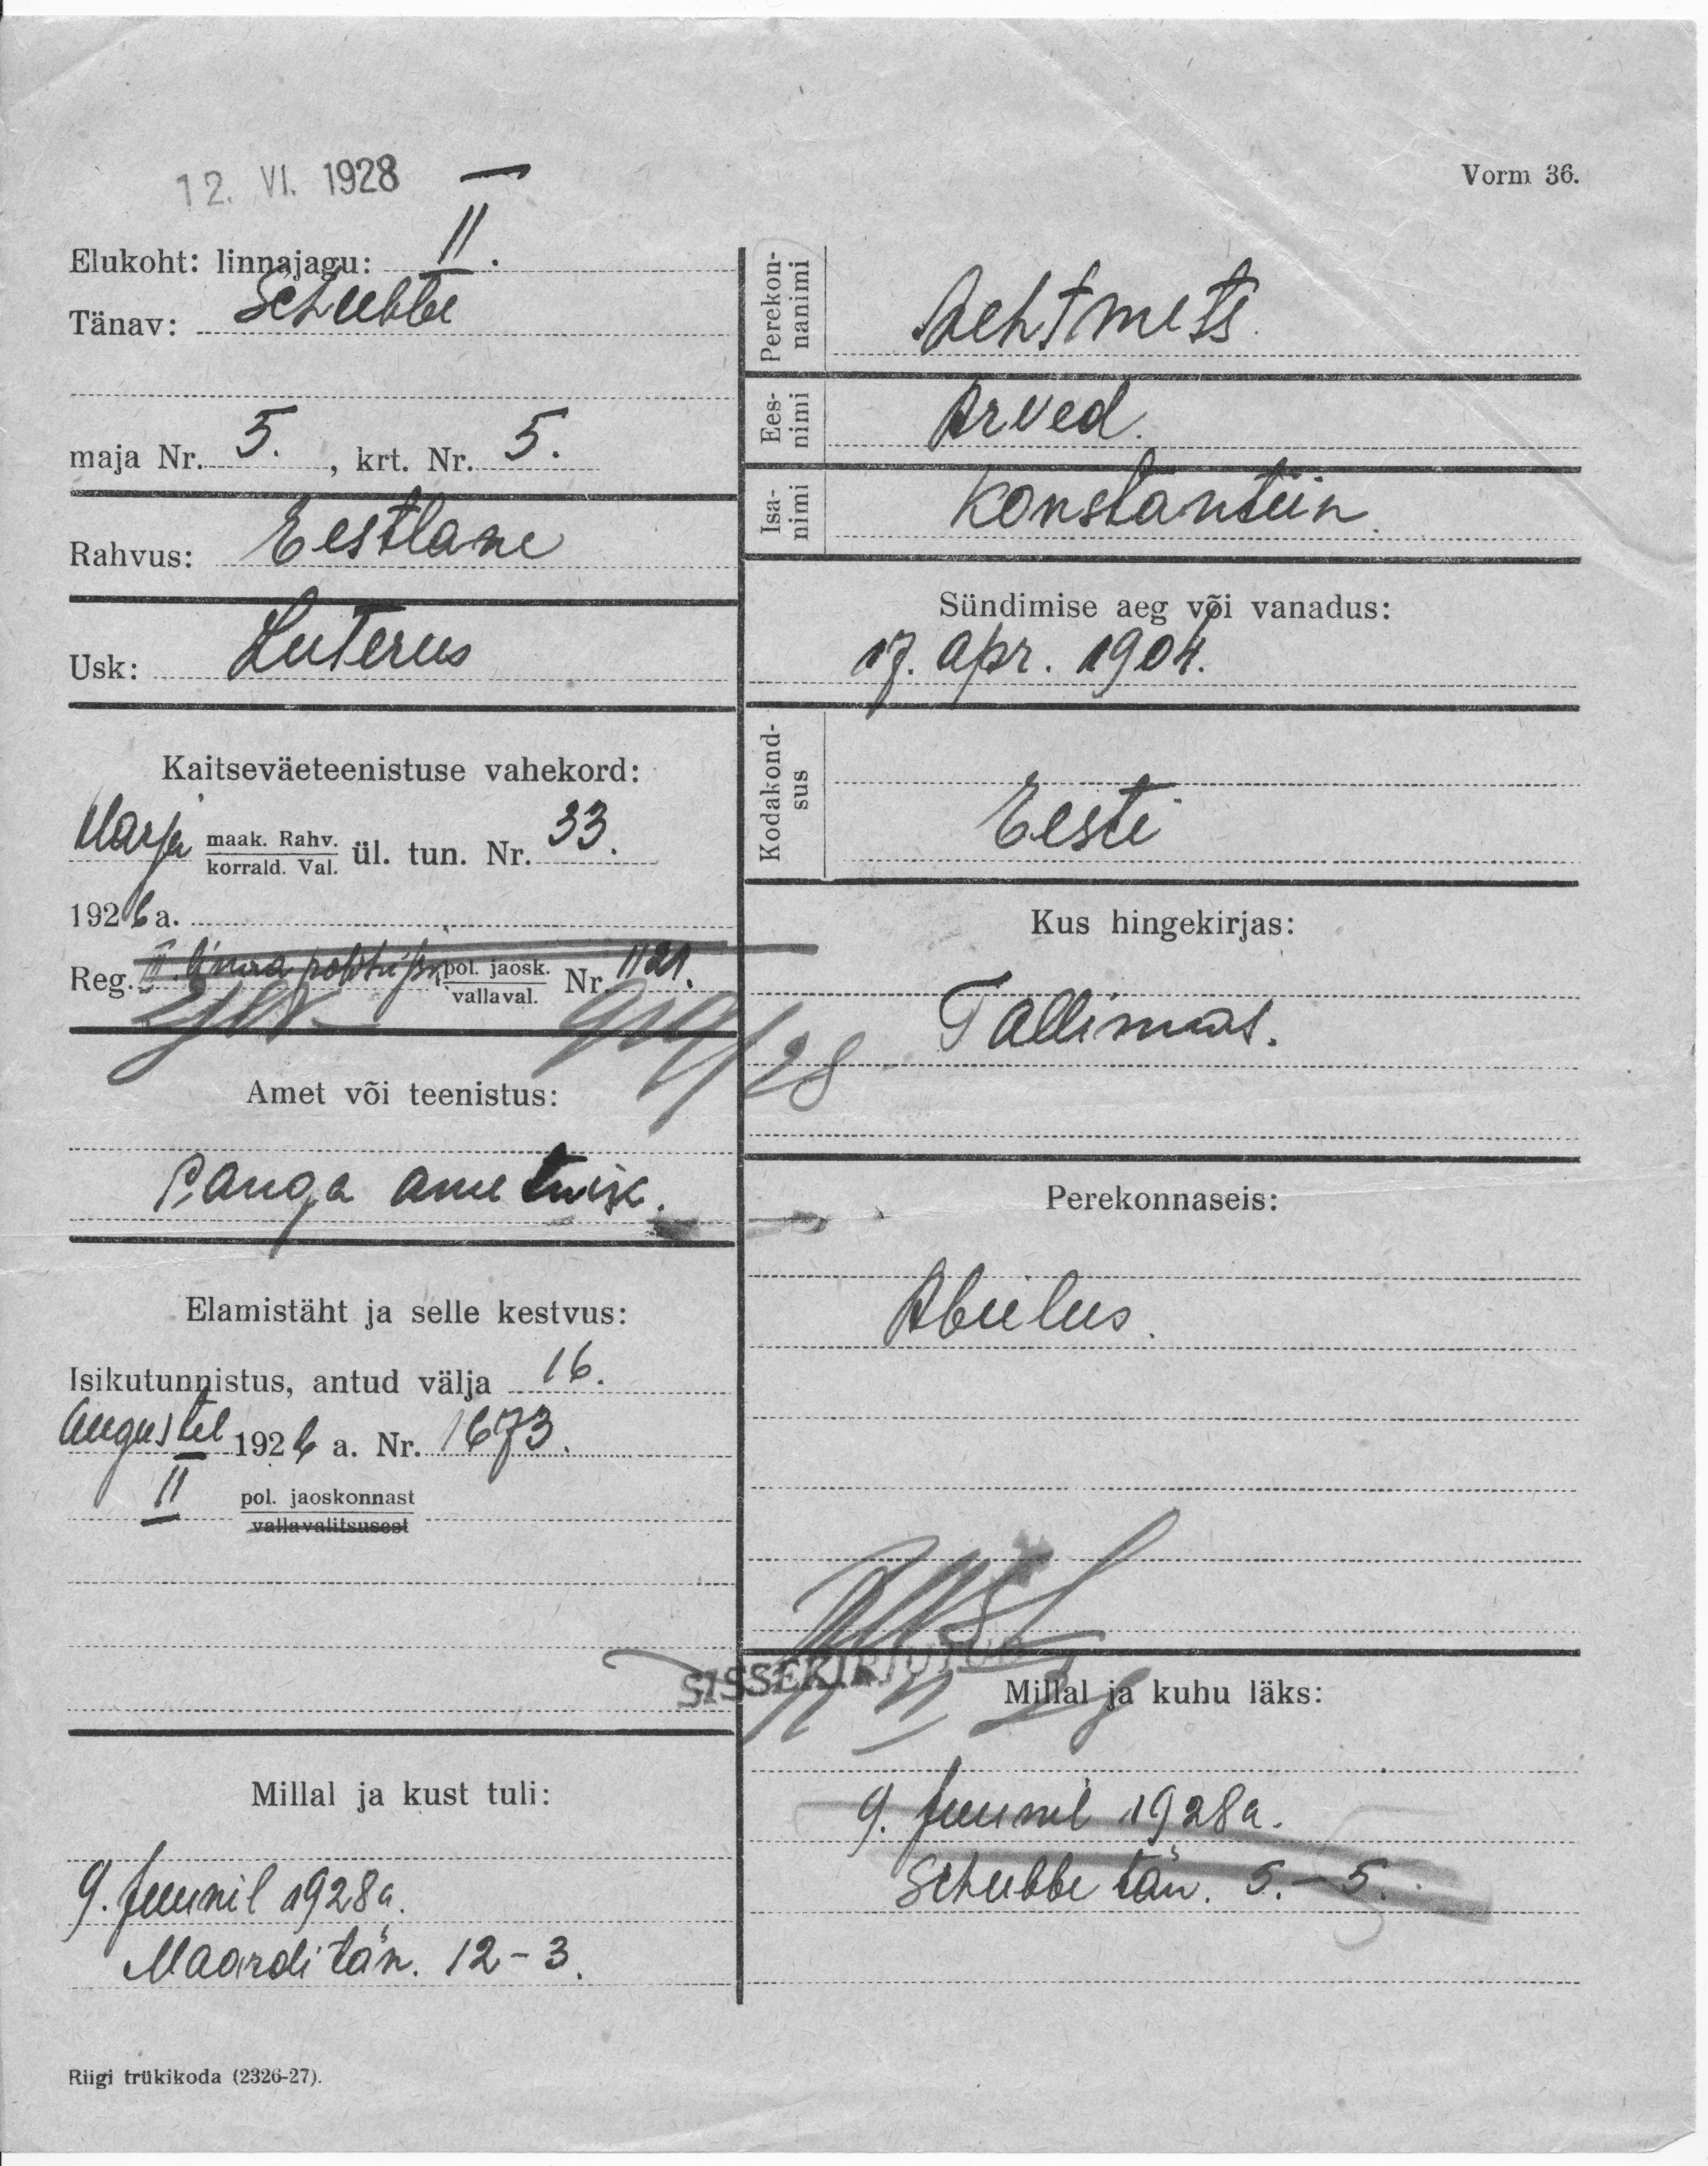 12. VI. 1928
Vorm 36.
Elukoht: linnajagu: II.
Tänav: Schubbe
maja Nr. 5. , krt. Nr. 5.
Rahvus: Eestlane
Usk: Luterus
Kaitseväeteenistuse vahekord:
Harju maak. Rahv. korrald. Val. ül. tun. Nr. 33.
1926 a.
Reg. linna pol. jaosk. vallaval. Nr. 1121.
919/28
Amet või teenistus:
Panga ametnik.
Elamistäht ja selle kestvus:
Isikutunnistus, antud välja 16.
Augustil 1926 a. Nr. 1673.
II pol. jaoskonnast
vallavalitsusest
Millal ja kust tuli:
9. Juunil 1928a.
Maardi tän. 12-3.
Riigi trükikoda (2326-27).
Perekon-
nanimi
Lehtmets.
Ees-
nimi
Arved.
Isa-
nimi
Konstantin.
Sündimise aeg või vanadus:
17. apr. 1904.
Kodakond-
sus
Eesti
Kus hingekirjas:
Tallinnas.
Perekonnaseis:
Abielus.
SISSEKIRJUTUD
Millal ja kuhu läks:
9. Juunil 1928a.
Schubbe tän. 5.-5.